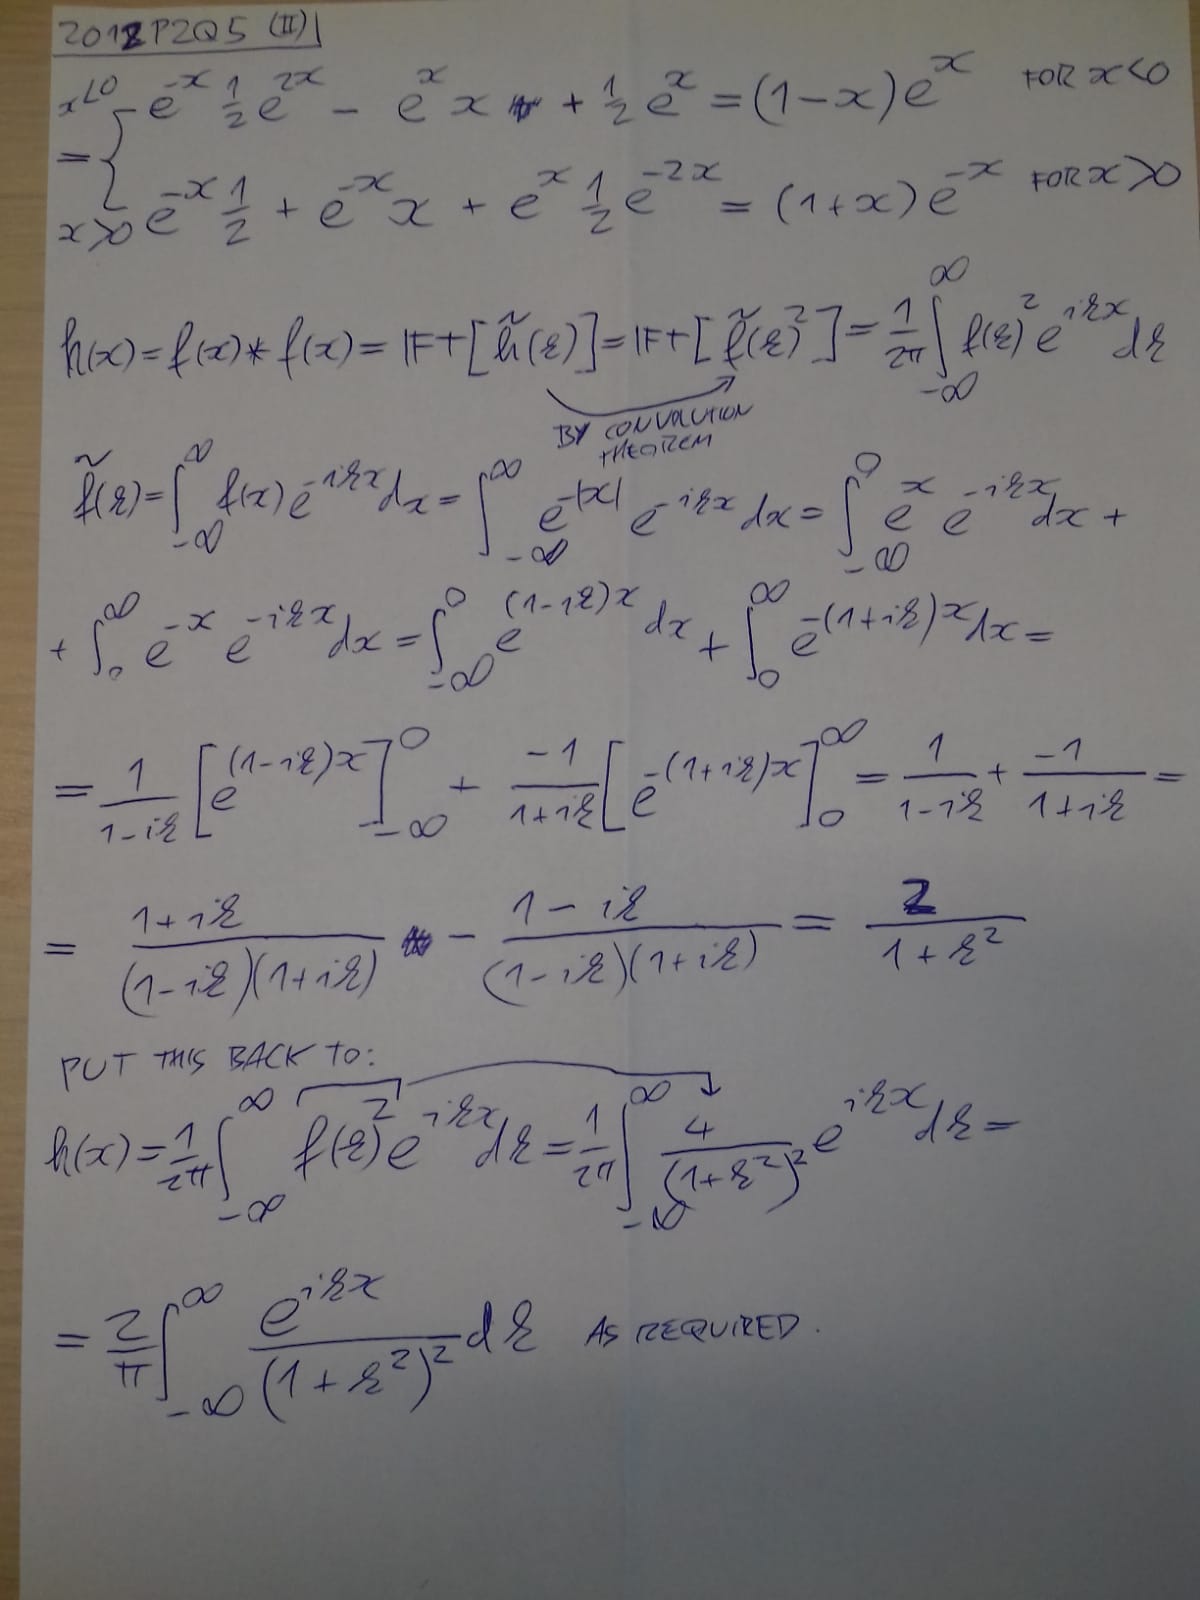 2018P2Q5 (II)
x<0 -e^{-x} 1/2 e^{2x} - e^x x + 1/2 e^x = (1-x)e^x FOR x<0
= {
x>0 e^{-x} 1/2 + e^{-x} x + e^x 1/2 e^{-2x} = (1+x)e^{-x} FOR x>0
h(x) = f(x)*f(x) = IFT[h̃(k)] = IFT[f̃(k)^2] = 1/2π ∫_{-∞}^{∞} f(k)^2 e^{ikx} dk
BY CONVOLUTION
THEOREM
f̃(k) = ∫_{-∞}^{∞} f(x) e^{-ikx} dx = ∫_{-∞}^{∞} e^{-|x|} e^{-ikx} dx = ∫_{-∞}^{0} e^x e^{-ikx} dx +
+ ∫_0^∞ e^{-x} e^{-ikx} dx = ∫_{-∞}^{0} e^{(1-ik)x} dx + ∫_0^∞ e^{-(1+ik)x} dx =
= 1/(1-ik) [e^{(1-ik)x}]_{-∞}^{0} + -1/(1+ik) [e^{-(1+ik)x}]_0^∞ = 1/(1-ik) + -1/(1+ik) =
= (1+ik)/((1-ik)(1+ik)) - (1-ik)/((1-ik)(1+ik)) = 2/(1+k^2)
PUT THIS BACK TO:
h(x) = 1/2π ∫_{-∞}^{∞} f(k)^2 e^{ikx} dk = 1/2π ∫_{-∞}^{∞} 4/(1+k^2)^2 e^{ikx} dk =
= 2/π ∫_{-∞}^{∞} e^{ikx}/(1+k^2)^2 dk AS REQUIRED.